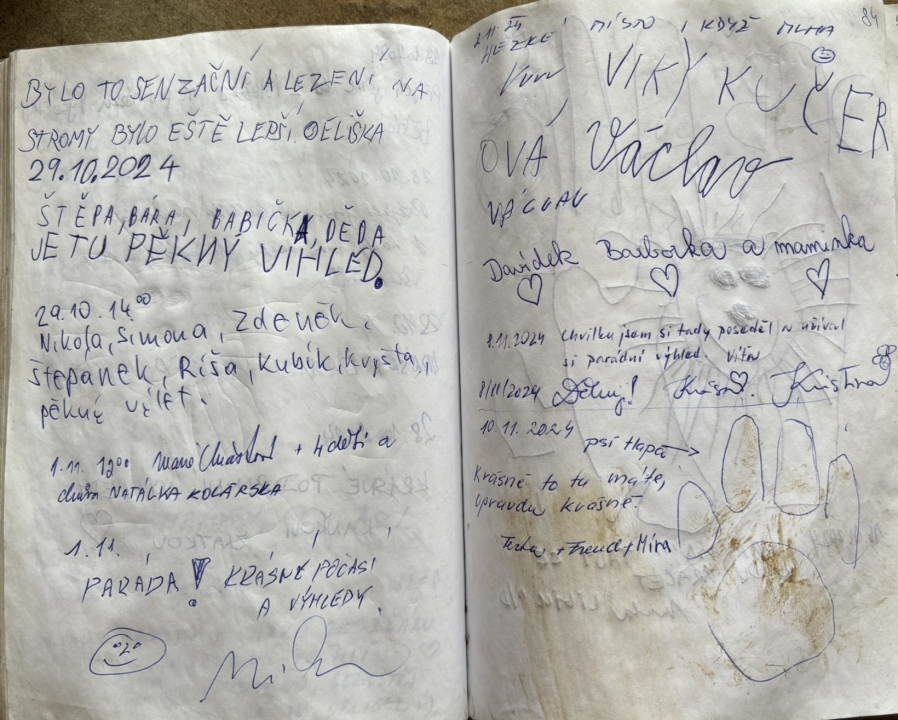 BYLO TO SENZAČNÍ A LEZENI NA
STROMY BYLO EŠTĚ LEPŠÍ. ELIŠKA
29.10.2024
ŠTĚPA, BÁRA, BABIČKA, DĚDA
JE TU PĚKNÝ VIHLED.
29.10. 14.00
Nikola, Simona, Zdeněk,
štěpánek, Ríša, Kubík,
pěkný výlet.
1.11. 12 00 + 4 děti a
NATÁLKA KOLÁRSKA
1.11.
PARÁDA! KRÁSNÉ POČASÍ
A VÝHLEDY.
84
2.11.24 MÍSTO I KDYŽ MLHA
HEZKÉ
VIKY KUČ
ER
OVÁ Václav
VÁCLAV
Davídek Barborka a maminka
8.11.2024 Chvilku jsem si tady poseděl a užíval
si parádní výhled. Víťa
8/11/2024 Děkuji! Krása! Kristina
10.11.2024
psí tlapa →
Krásně to tu máte,
opravdu krásně.
+ Freud + Míra